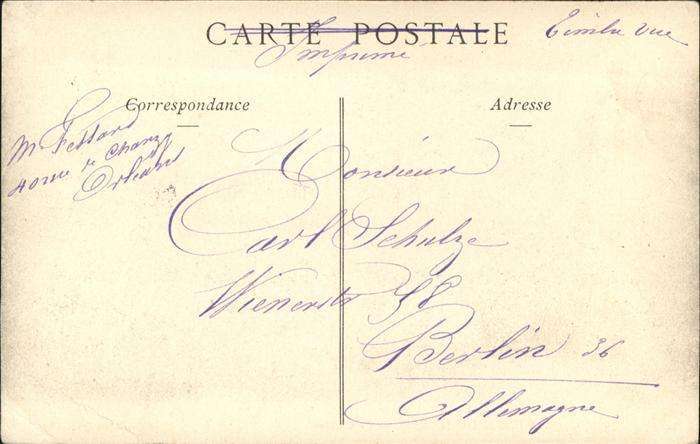 CARTE POSTALE
Imprimé
Timbre vue
Correspondance
Adresse
M Fessard
40 rue de Chanzy
Orléans
Monsieur
Carl Schulze
Wienerstr 58
Berlin 36
Allemagne